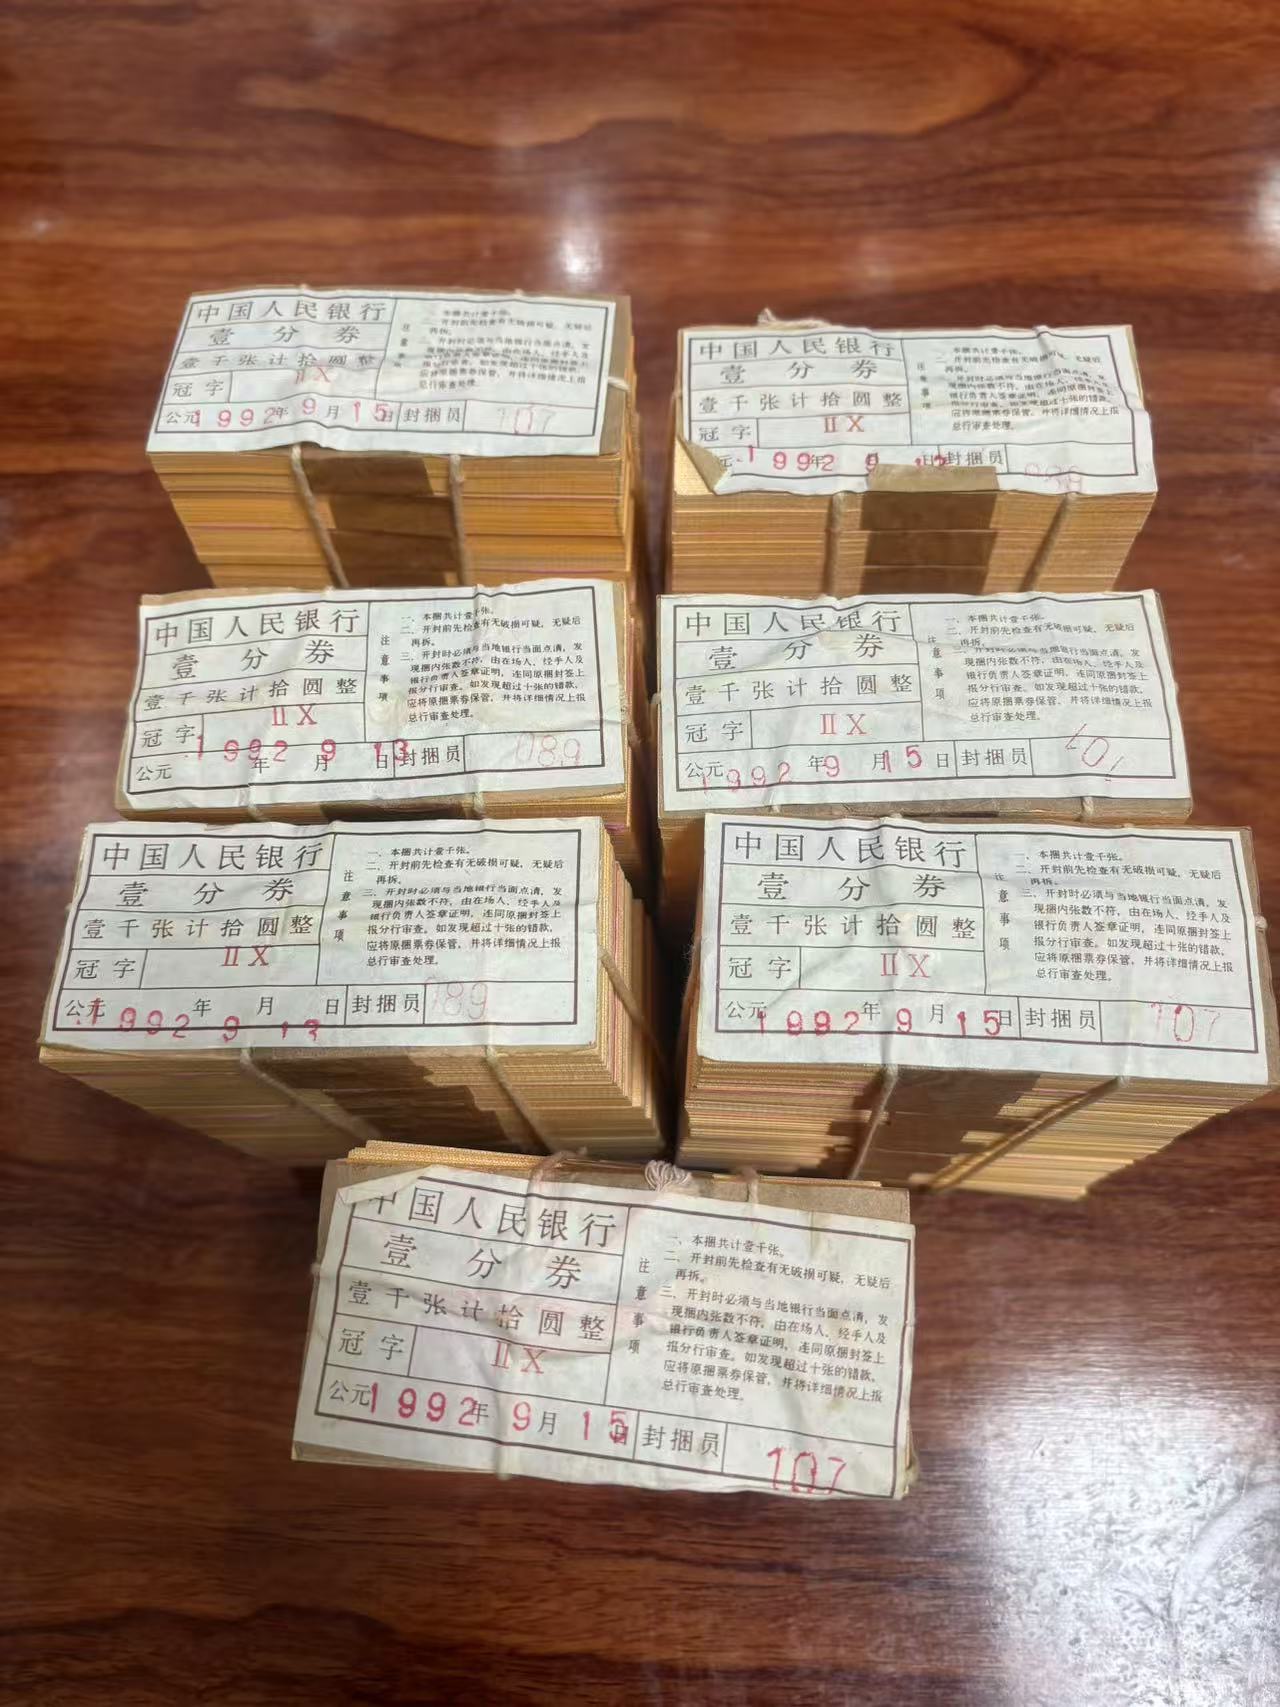 中国人民银行
壹分券
壹千张计拾圆整
冠字 IIX
公元1992年9月15日 封捆员 107
注意事项
一、本捆共计壹千张。
二、开封前先检查有无破损可疑，无疑后
再拆。
三、开封时必须与当地银行当面点清，发
现捆内张数不符，由在场人、经手人及
银行负责人签章证明，连同原捆封签上
报分行审查。如发现超过十张的错款，
应将原捆票券保管，并将详细情况上报
总行审查处理。
中国人民银行
壹分券
壹千张计拾圆整
冠字 IIX
元1992年9月 日 封捆员
注意事项
一、本捆共计壹千张。
二、开封前先检查有无破损可疑，无疑后
再拆。
三、开封时必须与当地银行当面点清，发
现捆内张数不符，由在场人、经手人及
银行负责人签章证明，连同原捆封签上
报分行审查。如发现超过十张的错款，
应将原捆票券保管，并将详细情况上报
总行审查处理。
中国人民银行
壹分券
壹千张计拾圆整
冠字 IIX
公元1992年9月13日 封捆员 089
注意事项
一、本捆共计壹千张。
二、开封前先检查有无破损可疑，无疑后
再拆。
三、开封时必须与当地银行当面点清，发
现捆内张数不符，由在场人、经手人及
银行负责人签章证明，连同原捆封签上
报分行审查。如发现超过十张的错款，
应将原捆票券保管，并将详细情况上报
总行审查处理。
中国人民银行
壹分券
壹千张计拾圆整
冠字 IIX
公元1992年9月15日 封捆员
注意事项
一、本捆共计壹千张。
二、开封前先检查有无破损可疑，无疑后
再拆。
三、开封时必须与当地银行当面点清，发
现捆内张数不符，由在场人、经手人及
银行负责人签章证明，连同原捆封签上
报分行审查。如发现超过十张的错款，
应将原捆票券保管，并将详细情况上报
总行审查处理。
中国人民银行
壹分券
壹千张计拾圆整
冠字 IIX
公元1992年9月13日 封捆员 089
注意事项
一、本捆共计壹千张。
二、开封前先检查有无破损可疑，无疑后
再拆。
三、开封时必须与当地银行当面点清，发
现捆内张数不符，由在场人、经手人及
银行负责人签章证明，连同原捆封签上
报分行审查。如发现超过十张的错款，
应将原捆票券保管，并将详细情况上报
总行审查处理。
中国人民银行
壹分券
壹千张计拾圆整
冠字 IIX
公元1992年9月15日 封捆员 107
注意事项
一、本捆共计壹千张。
二、开封前先检查有无破损可疑，无疑后
再拆。
三、开封时必须与当地银行当面点清，发
现捆内张数不符，由在场人、经手人及
银行负责人签章证明，连同原捆封签上
报分行审查。如发现超过十张的错款，
应将原捆票券保管，并将详细情况上报
总行审查处理。
中国人民银行
壹分券
壹千张计拾圆整
冠字 IIX
公元1992年9月15日 封捆员 107
注意事项
一、本捆共计壹千张。
二、开封前先检查有无破损可疑，无疑后
再拆。
三、开封时必须与当地银行当面点清，发
现捆内张数不符，由在场人、经手人及
银行负责人签章证明，连同原捆封签上
报分行审查。如发现超过十张的错款，
应将原捆票券保管，并将详细情况上报
总行审查处理。